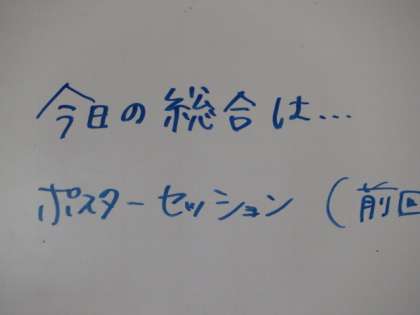 今日の総合は...
ポスターセッション (前回